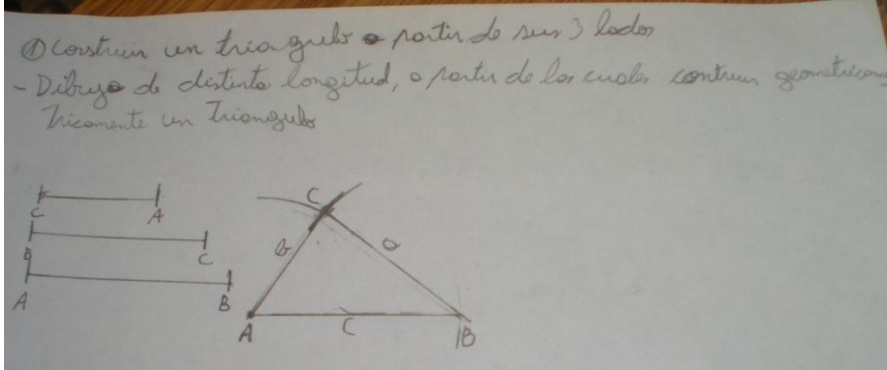 ① Construir un triagulo a partir de sus 3 lados
- Dibujo de distinta longitud, a partir de los cuales contruir geometricame
tricamente un Triangulo
C A
B C
A B
C
b a
A C B